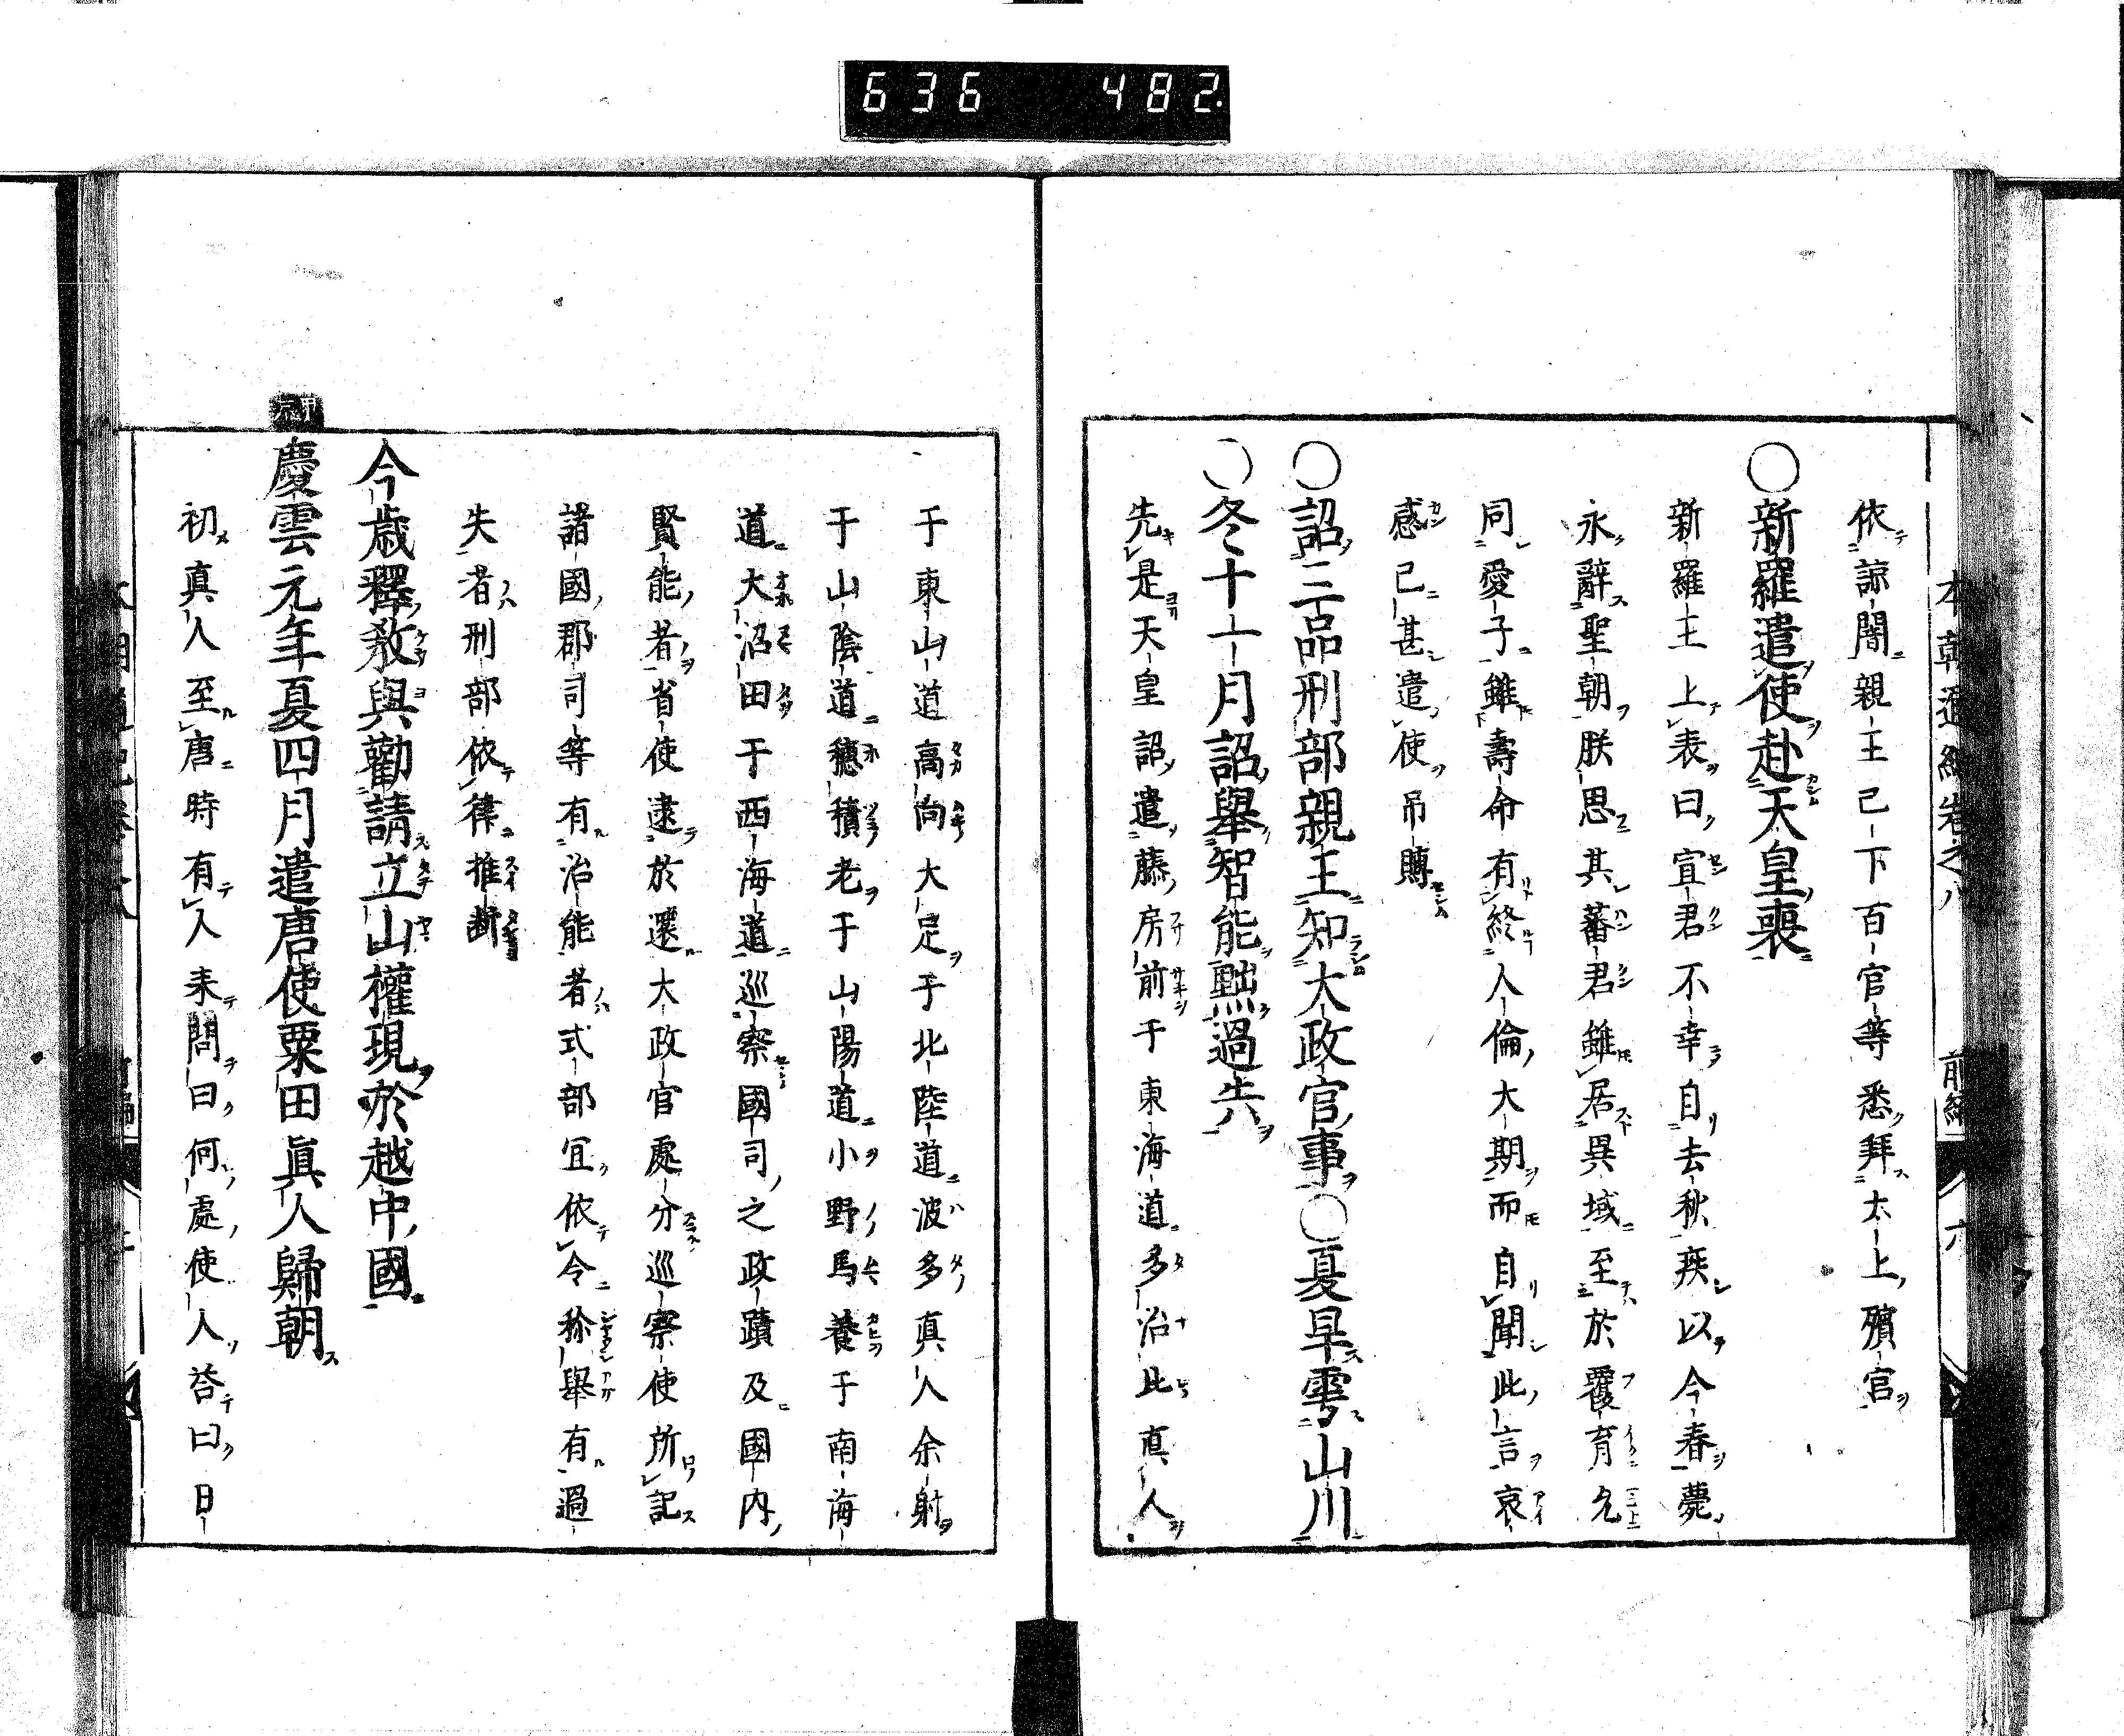 636 482.
本朝通紀卷之八 前編 六
依諒闇親王已下百官等悉拜太上殯宮
○新羅遣使赴天皇喪
新羅王上表曰寡君不幸自去秋疾以今春薨
永辭聖朝朕思其蕃君雖居異域至於覆育允
同愛子雖壽命有終人倫大期而自聞此言哀
感已甚遣使吊賻
○詔三品刑部親王知太政官事○夏旱雩山川
○冬十一月詔舉智能黜過失
先是天皇詔遣藤房前于東海道多治比真人
于東山道高向大足于北陸道波多真人余射
于山陰道穗積老于山陽道小野馬養于南海
道大沼田于西海道巡察國司之政蹟及國内
賢能者省使逮於還大政官處分巡察使所記
諸國郡司等有治能者式部宜依令稱舉有過
失者刑部依律推斷
今歳釋教與勸請立山權現於越中國
慶雲元年夏四月遣唐使粟田眞人歸朝
初真人至唐時有人来問曰何處使人答曰日